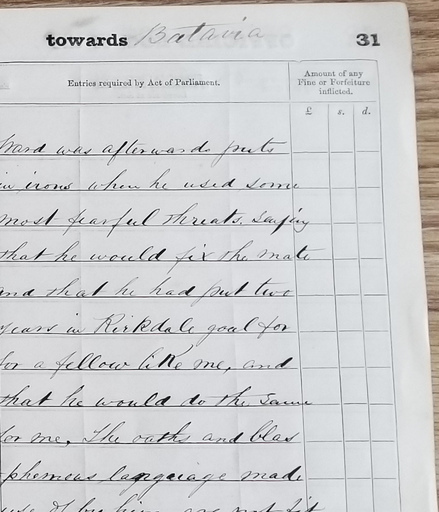 towards Batavia 31
Entries required by Act of Parliament.
Amount of any
Fine or Forfeiture
inflicted.
£ s. d.
Ward was afterwards puts
in irons when he used some
most fearful threats. Saying
that he would fix the mate
and that he had put two
years in Kirkdale goal for
for a fellow like me, and
that he would do the same
for me, The oaths and blas
phemous language made
use of by him are not fit